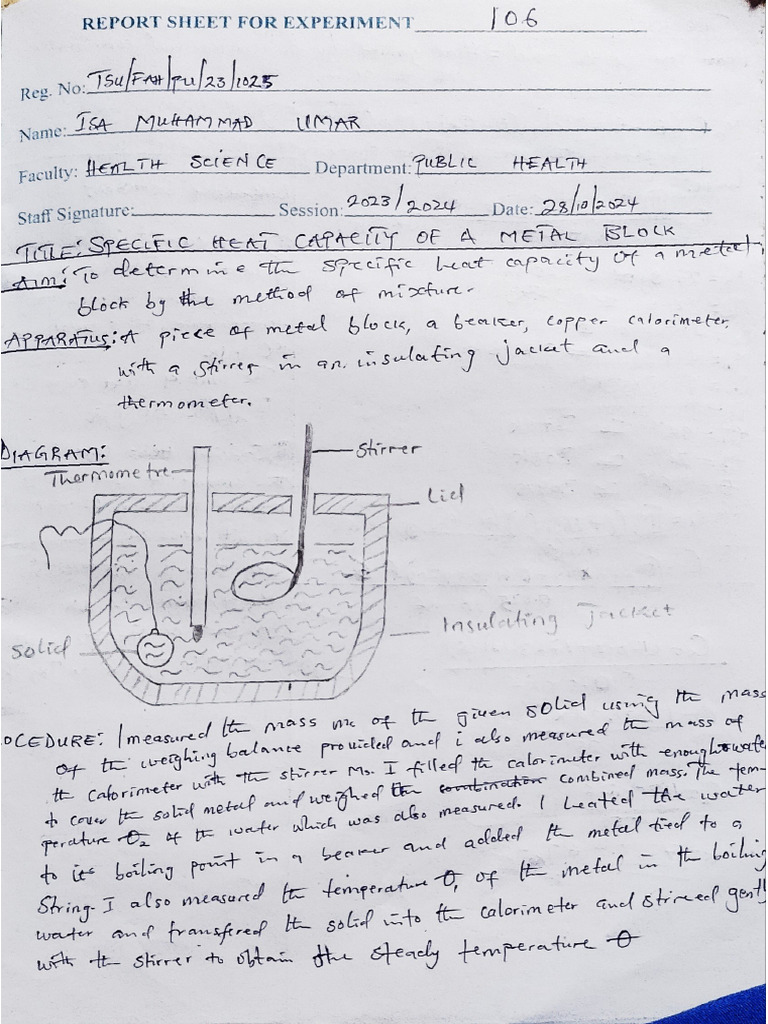 REPORT SHEET FOR EXPERIMENT 106
Reg. No: TSU/FAH/PU/23/1025
Name: ISA MUHAMMAD UMAR
Faculty: HEALTH SCIENCE Department: PUBLIC HEALTH
Staff Signature: Session: 2023/2024 Date: 28/10/2024
TITLE: SPECIFIC HEAT CAPACITY OF A METAL BLOCK
Aim: To determine the specific heat capacity of a metal
block by the method of mixture.
APPARATUS: A piece of metal block, a beaker, copper calorimeter
with a stirrer in an insulating jacket and a
thermometer.
DIAGRAM:
Stirrer
Thermometre
Lid
Insulating Jacket
Solid
OCEDURE: I measured the mass mc of the given solid using the mass
of the weighing balance provided and i also measured the mass of
the calorimeter with the stirrer M₀. I filled the calorimeter with enough wate
to cover the solid metal and weighed the combination combined mass. The tem-
perature θ₂ of the water which was also measured. I heated the water
to its boiling point in a beaker and added the metal tied to a
string. I also measured the temperature θ₁ of the metal in the boiling
water and transfered the solid into the calorimeter and stirred gently
with the stirrer to obtain the steady temperature θ